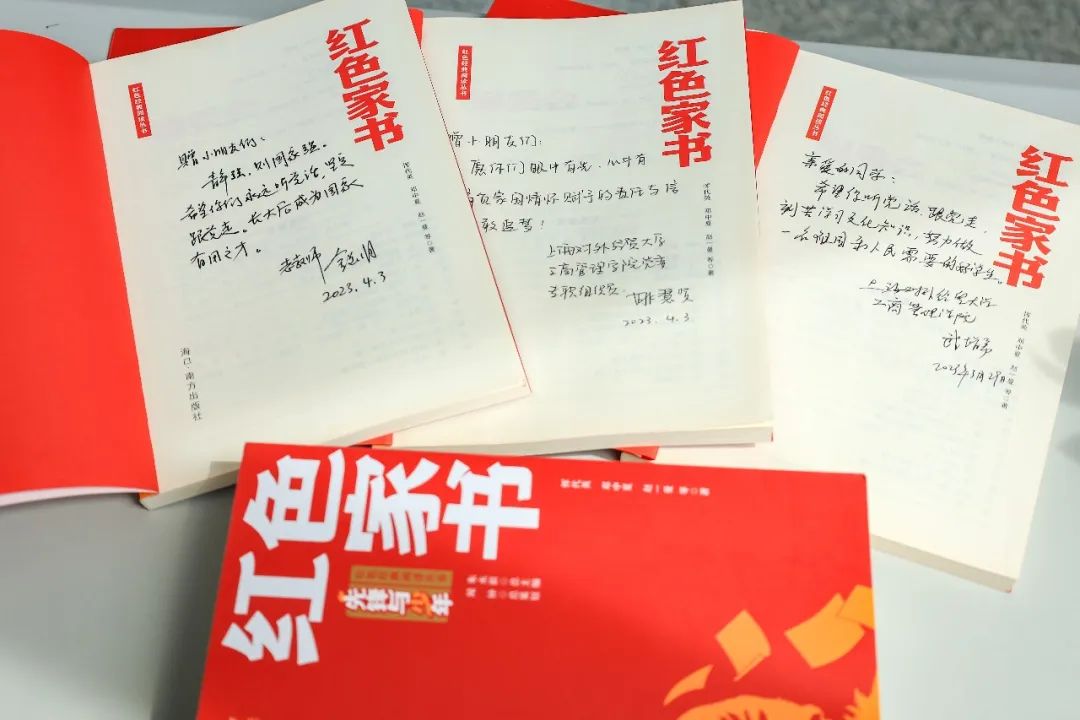 红色家书
红色经典阅读丛书
赠小朋友们：
青年强，则国家强。
希望你们永远听党话，坚定
跟党走。长大后成为国家
有用之才。
2023.4.3
恽代英 邓中夏 赵一曼 等 著
海口·南方出版社
红色家书
红色经典阅读丛书
赠小朋友们：
愿你们眼中有光，心中有
家国情怀
上海对外经贸大学
工商管理学院党委
专职组织员
2023.4.3
代英 邓中夏 赵一曼 等 著
红色家书
红色经典阅读丛书
亲爱的同学：
希望你听党话，跟党走，
刻苦学习文化知识，努力做
一名祖国和人民需要的好学生。
上海对外经贸大学
工商管理学院
2023年3月29日
恽代英 邓中夏 赵一曼 等 著
红色家书
恽代英 邓中夏 赵一曼 等 著
红色经典阅读丛书
先锋与少年